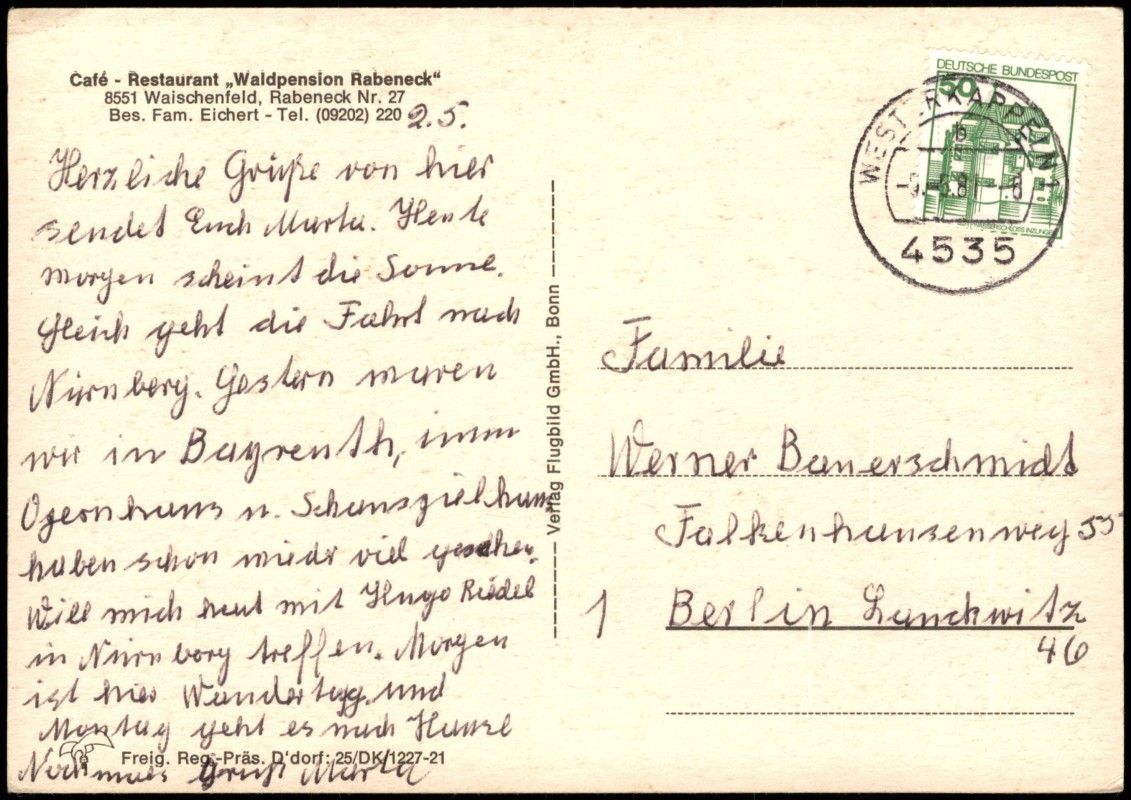 Café - Restaurant „Waldpension Rabeneck“
8551 Waischenfeld, Rabeneck Nr. 27
Bes. Fam. Eichert - Tel. (09202) 220
2.5.
Herzliche Grüße von hier
sendet Euch Marta. Heute
morgen scheint die Sonne.
Gleich geht die Fahrt nach
Nürnberg. Gestern waren
wir in Bayreuth, imm
Opernhaus u. Schauspielhaus
haben schon wieder viel gesehen.
Will mich heut mit Hugo Riedel
in Nürnberg treffen. Morgen
ist hier Wandertag. und
Montag geht es nach Hause
Nochmals Gruß Marta
Freig. Reg.-Präs. D'dorf: 25/DK/1227-21
Verlag Flugbild GmbH., Bonn
DEUTSCHE BUNDESPOST
50
WASSERSCHLOSS INZLINGEN
WESTERKAPPELN 1
b
4535
Familie
Werner Bauerschmidt
Falkenhausenweg 55
1 Berlin Lankwitz
46